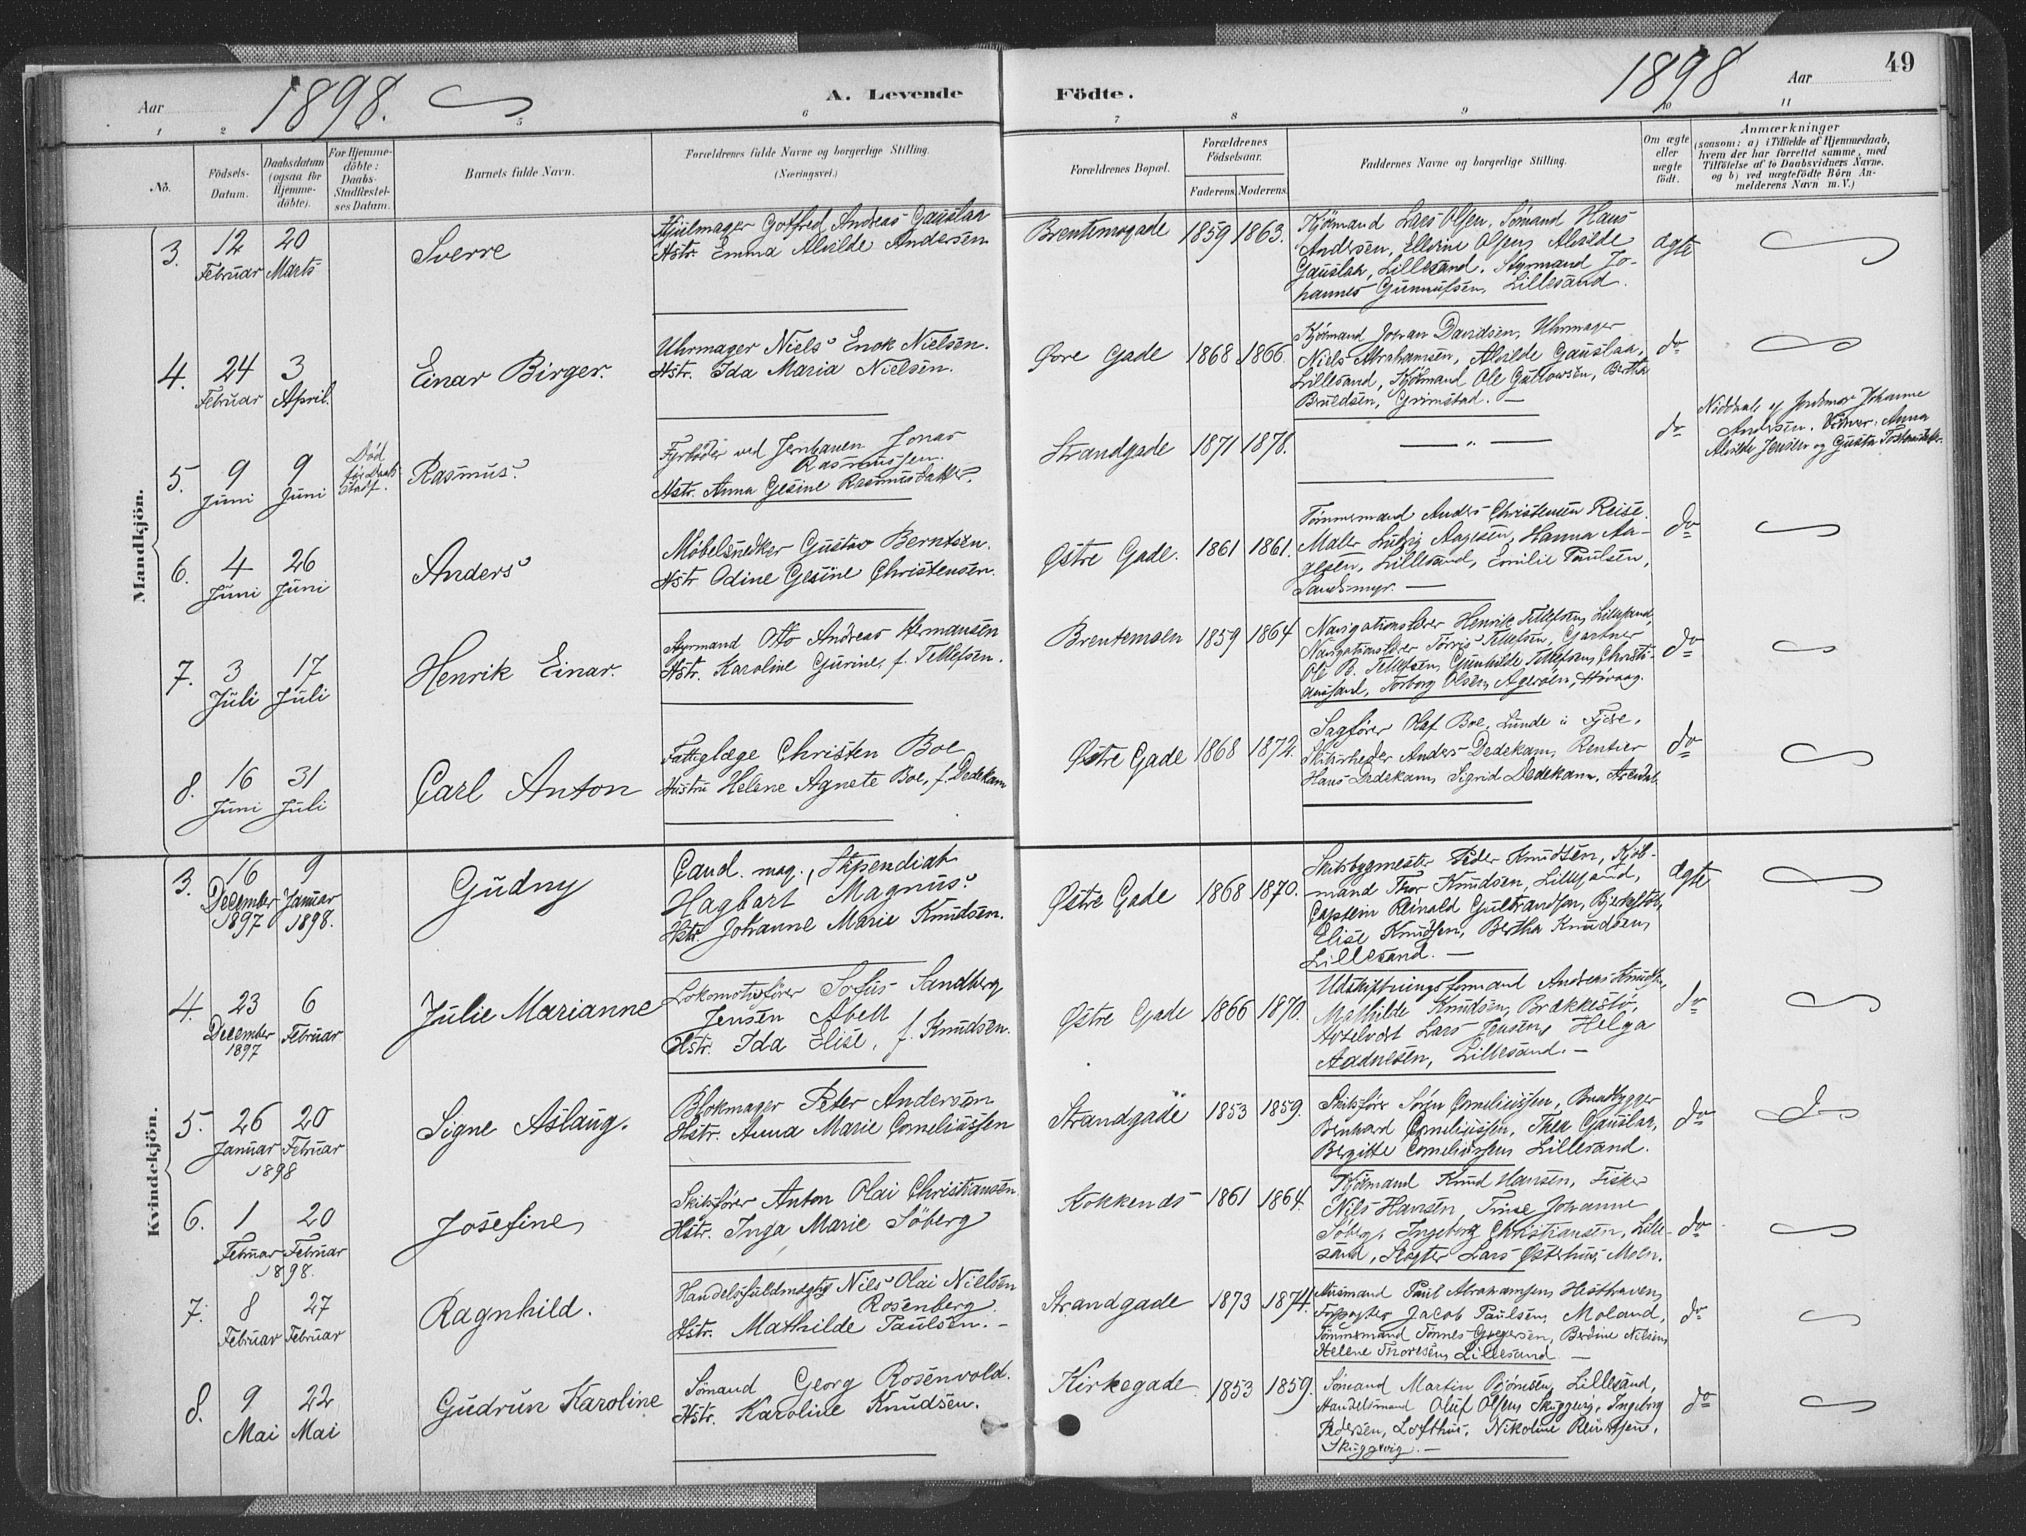 Aar 1898. A. Levende
Födte. 1898 Aar 49
1 2 5 6
7 8 9 10 11
No.
Födsels-Datum.
Daabsdatum (ogsaa for Hjemme-döbte).
For Hjemme-döbte: Daabs-Stadfæstel-ses Datum.
Barnets fulde Navn.
Forældrenes fulde Navne og borgerlige Stilling.
(Næringsvei.)
Forældrenes Bopæl.
Forældrenes Födselsaar.
Faderens. Moderens.
Faddernes Navne og borgerlige Stilling.
Om ægte eller uægte födt.
Anmærkninger
(saasom: a) i Tilfælde af Hjemmedaab, hvem der har forrettet samme, med Tilföielse af to Daabsvidners Navne. og b) ved uægtefödte Börn An-melderens Navn m. V.)
Mandkjön.
3. 12 Februar 20 Marts
Sverre
Hjulmager Gotfred Andreas Gauslaa
Hstr. Emma Alvilde Andersen
Brentemogade 1859 1863.
Kjömand Lars Olsen, Sömand Hans
Andersen, Ellevine Olsen, Alvilde
Gauslaa, Lillesand. Styrmand Jo-
hannes Gunnufsen, Lillesand.
ægte
4. 24 Februar 3 April.
Einar Birger.
Uhrmager Niels Enok Nielsen.
Hstr. Ida Maria Nielsen.
Övre Gade 1868 1866.
Kjömand Davidsen, Uhrmager
Niels Abrahamsen, Alvilde Gauslaa,
Lillesand, Kjömand Ole Gullowsen, Bertha
Grimstad. —
do
5. 9 Juni 9 Juni
Död för Daabs Stadf.
Rasmus
Fyrböder ved Jernbanen Jonas
Rasmussen.
Hstr. Anna Gesine Rasmusdatter
Strandgade 1871 1878.
— „ —
do
Nöddaab af Jordemor Johanne
Andersen. Vidner: Anna
Alvilde Jensen og Gusta
6. 4 Juni 26 Juni
Anders
Möbelsnedker Gustav Berntsen.
Hstr. Odine Gesine Christensen.
Østre Gade. 1861 1861.
Tömmermand Anders Christensen Reise.
Maler Ludvig Aagesen, Hanna Aa-
gesen, Lillesand, Emilie Paulsen,
Sandsmyr. —
do
7. 3 Juli 17 Juli
Henrik Einar.
Styrmand Otto Andreas Hermansen
Hstr. Karoline Gurine, f. Tellefsen.
Brentemoen 1859 1864
Navigationslærer Henrik Tellefsen, Lillesand,
Navigationslærer Törris Tellefsen, Gartner
Ole B. Tellefsen, Gunhilde Tellefsen, Christi-
ansand, Torborg Olsen, Ageröen, Hövaag.
do
8. 16 Juni 31 Juli
Carl Anton
Fattiglæge Christen Boe
Hustru Helene Agnete Boe, f. Dedekam
Østre Gade 1868 1872.
Sagförer Olaf Boe, Lunde i Fjære,
Skibsrheder Anders Dedekam, Rentier
Hans Dedekam, Sigrid Dedekam, Arendal.
do
Kvindekjön.
3. 16 December 1897 9 Januar 1898.
Gudny
Cand. mag., Stipendiat
Hagbart Magnus
Hstr. Johanne Marie Knudsen.
Østre Gade 1868 1870.
Skibsbygmester Peder Knudsen, Kjöb-
mand Thor Knudsen, Lillesand,
Captein Reinald Gultrandsen,
Elise Knudsen, Bertha Knudsen,
Lillesand. —
ægte
4. 23 December 1897 6 Februar
Julie Marianne
Lokomotivförer Sofus Sandberg
Jensen Abell
Hstr. Ida Elise, f. Knudsen.
Østre Gade 1866 1870.
Udskiftningsformand Andreas Knudsen,
Mathilde Knudsen, Brækkestö,
Lars Jensen, Helga
Aadnesen, Lillesand. —
do
5. 26 Januar 20 Februar 1898
Signe Aslaug.
Blokmager Peter Andersen
Hstr. Anna Marie Corneliussen
Strandgade 1853 1859.
Skibsförer Sören Corneliussen,
Bernhard Corneliussen, Thea Gauslaa,
Bergitte Corneliussen, Lillesand.
do
6. 1 Februar 20 Februar 1898.
Josefine
Skibsförer Anton Olai Christiansen
Hstr. Inga Marie Söberg
Kokkenes 1861 1864.
Kjömand Knud Hansen, Fisker
Nils Hansen, Trine Johanne
Söberg, Ingeborg Christiansen, Lille-
sand, Slagter Lars Østerhus, Moen.
do
7. 8 Februar 27 Februar
Ragnhild.
Handelsfuldmægtig Nils Olai Nielsen
Rosenberg.
Hstr. Mathilde Paulsen. —
Strandgade 1873 1874.
Paul Abrahamsen, Hesthaven,
Jacob Paulsen, Moland,
Tömmermand Tönnes Gregersen, Berdine Nilsen,
Helene Thoresen, Lillesand —
do
8. 9 Mai 22 Mai
Gudrun Karoline
Sömand Georg Rosenvold.
Hstr. Karoline Knudsen.
Kirkegade 1853 1859.
Sömand Martin Björnsen, Lillesand,
Handelsmand Oluf Olsen, Skuggevig, Ingeborg
Pedersen, Lofthus, Nikoline
Skuggevig. —
do